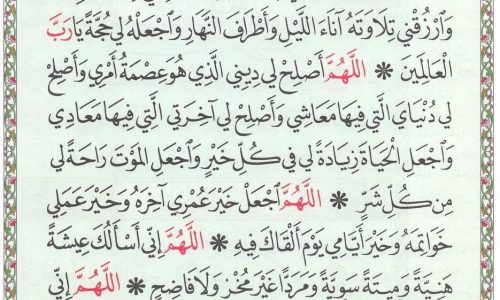 وَٱرْزُقْنِي تِلَاوَتَهُ آنَاءَ اللَّيْلِ وَأَطْرَافَ النَّهَارِ وَٱجْعَلْهُ لِي حُجَّةً يَا رَبَّ
الْعَالَمِينَ * اللَّهُمَّ أَصْلِحْ لِي دِينِي الَّذِي هُوَ عِصْمَةُ أَمْرِي وَأَصْلِحْ
لِي دُنْيَايَ الَّتِي فِيهَا مَعَاشِي وَأَصْلِحْ لِي آخِرَتِي الَّتِي فِيهَا مَعَادِي
وَٱجْعَلِ الْحَيَاةَ زِيَادَةً لِي فِي كُلِّ خَيْرٍ وَٱجْعَلِ الْمَوْتَ رَاحَةً لِي
مِن كُلِّ شَرٍّ * اللَّهُمَّ ٱجْعَلْ خَيْرَ عُمْرِي آخِرَهُ وَخَيْرَ عَمَلِي
خَوَاتِمَهُ وَخَيْرَ أَيَّامِي يَوْمَ أَلْقَاكَ فِيهِ * اللَّهُمَّ إِنِّي أَسْأَلُكَ عِيشَةً
هَنِيَّةً وَمِيتَةً سَوِيَّةً وَمَرَدًّا غَيْرَ مُخْزٍ وَلَا فَاضِحٍ * اللَّهُمَّ إِنِّي